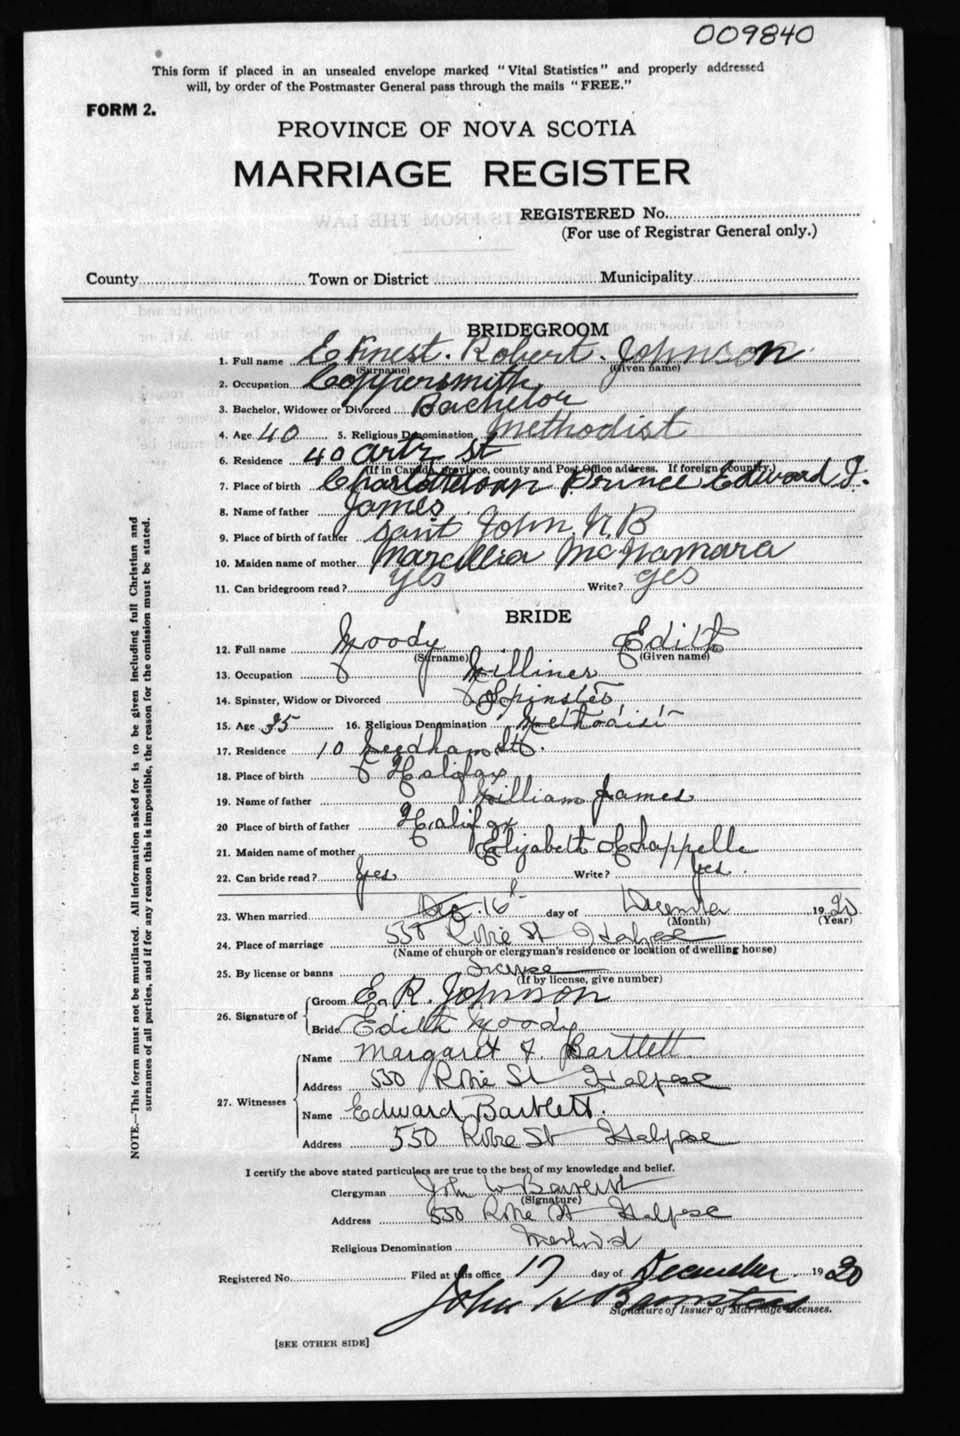 009840
This form if placed in an unsealed envelope marked "Vital Statistics" and properly addressed
will, by order of the Postmaster General pass through the mails "FREE."
FORM 2.
PROVINCE OF NOVA SCOTIA
MARRIAGE REGISTER
REGISTERED No.
(For use of Registrar General only.)
County Town or District Municipality
BRIDEGROOM
1. Full name Ernest Robert Johnson
(Surname) (Given name)
2. Occupation Coppersmith
3. Bachelor, Widower or Divorced Bachelor
4. Age 40 5. Religious Denomination Methodist
6. Residence 40 Artz St
(If in Canada, province, county and Post Office address. If foreign country.)
7. Place of birth Charlottetown Prince Edward I.
8. Name of father James
9. Place of birth of father Saint John N.B
10. Maiden name of mother McNamara
11. Can bridegroom read? yes Write? yes
BRIDE
12. Full name Moody Edith
(Surname) (Given name)
13. Occupation Milliner
14. Spinster, Widow or Divorced Spinster
15. Age 35 16. Religious Denomination Methodist
17. Residence 10 Needham St.
18. Place of birth Halifax
19. Name of father William James
20 Place of birth of father Halifax
21. Maiden name of mother Elizabeth Chappelle
22. Can bride read? Yes Write? Yes.
23. When married 16th day of December 1920
(Month) (Year)
24. Place of marriage 550 Robie St Halifax
(Name of church or clergyman's residence or location of dwelling house)
25. By license or banns License
(If by license, give number)
26. Signature of
Groom E. R. Johnson
Bride Edith Moody
27. Witnesses
Name Margaret F. Bartlett
Address 550 Robie St Halifax
Name Edward Bartlett.
Address 550 Robie St Halifax
I certify the above stated particulars are true to the best of my knowledge and belief.
Clergyman John W Bartlett
(Signature)
Address 550 Robie St Halifax
Religious Denomination Methodist
Registered No. Filed at this office 17 day of December 1920
John H Barnstead
Signature of Issuer of Marriage Licenses.
[SEE OTHER SIDE]
NOTE.—This form must not be mutilated. All information asked for is to be given including full Christian and
surnames of all parties, and if for any reason this is impossible, the reason for the omission must be stated.